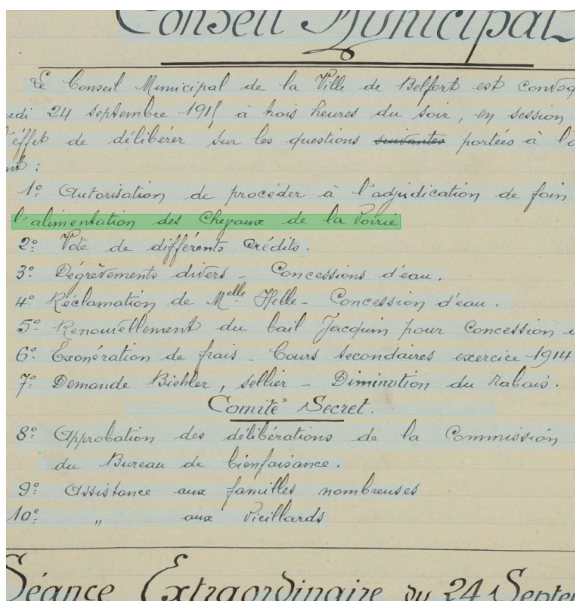 Conseil Municipal
Le Conseil Municipal de la Ville de Belfort est convoq
edi 24 septembre 1915 à trois heures du soir, en session
l'effet de délibérer sur les questions suivantes portées à l'o
:
1º Autorisation de procéder à l'adjudication de foin
l'alimentation des Chevaux de la Voirie
2º Vote de différents Crédits.
3º Dégrèvements divers - Concessions d'eau.
4º Réclamation de Melle Helle - Concession d'eau.
5º Renouvellement du bail Jacquin pour Concession
6º Exonération de frais - Cours secondaires exercice 1914
7º Demande Biehler, sellier - Diminution du rabais.
Comité Secret.
8º Approbation des délibérations de la Commission
du Bureau de bienfaisance.
9º Assistance aux familles nombreuses
10º " aux Vieillards
Séance Extraordinaire du 24 Septe